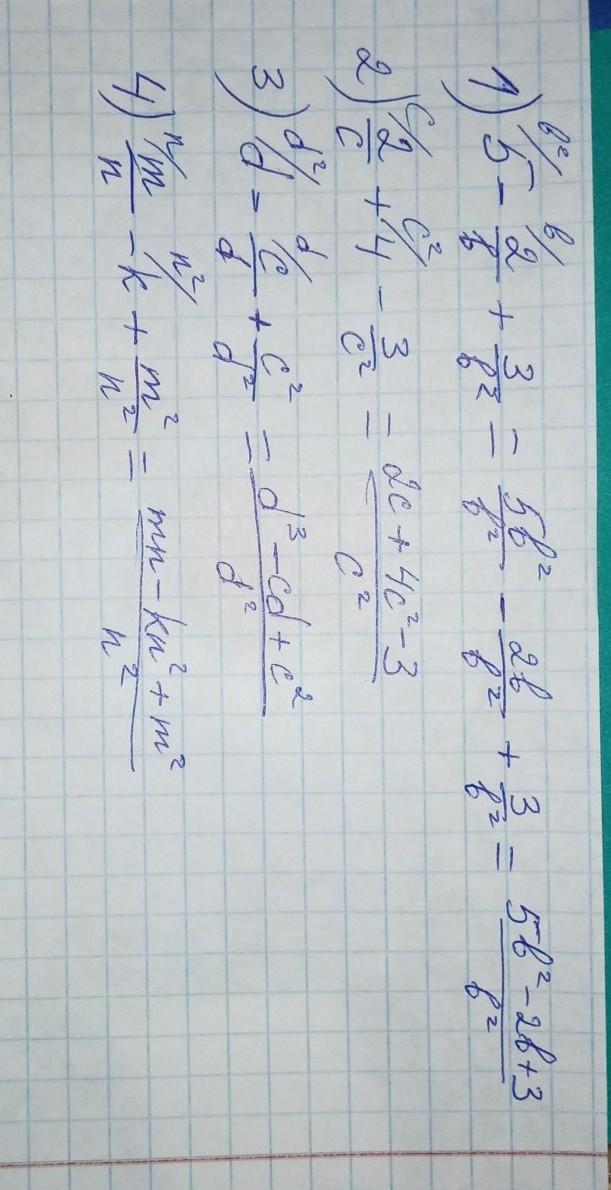 1) ᵇ²/5 - ᵇ/2/b + 3/b² = 5b²/b² - 2b/b² + 3/b² = (5b² - 2b + 3)/b²
2) ᶜ/2/c + ᶜ²/4 - 3/c² = (2c + 4c² - 3)/c²
3) ᵈ²/d - ᵈ/c/d + c²/d² = (d³ - cd + c²)/d²
4) ⁿ/m/n - ⁿ²/k + m²/n² = (mn - kn² + m²)/n²